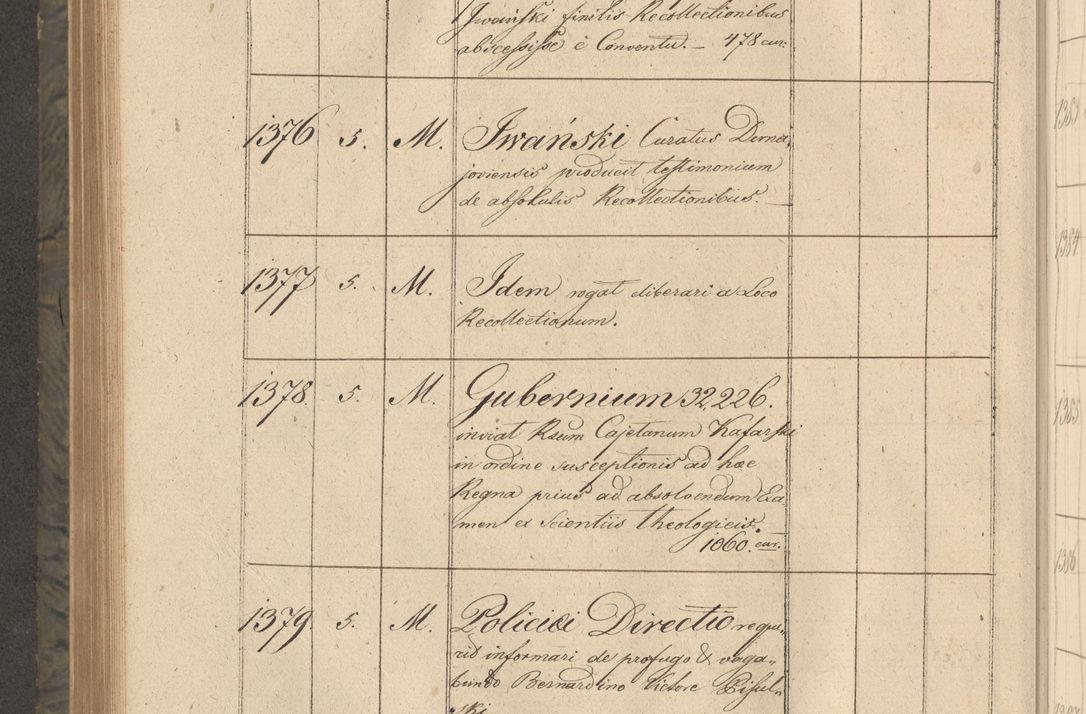 Jwański finitis Recollectionibus
abscessisse è Conventu. — 478 cur:
1376 5. M. Jwański Curatus Dmo„
joviensis producit testimonium
de absolutis Recollectionibus. —
1377 5. M. Idem rogat liberari a Loco
Recollectionum.
1378. 5. M. Gubernium 32,226.
inviat Rsum Cajetanum Kafarski
in ordine susceptionis ad hæc
Regna prius ad absolvendum Exa„
men ex Scientiis theologicis.
1060. cur.
1379. 5. M. Policiei Directio requi„
rit informari de profugo & vaga„
bundo Bernardino Victore Pisul„
ski
1383
1384
1385
1386